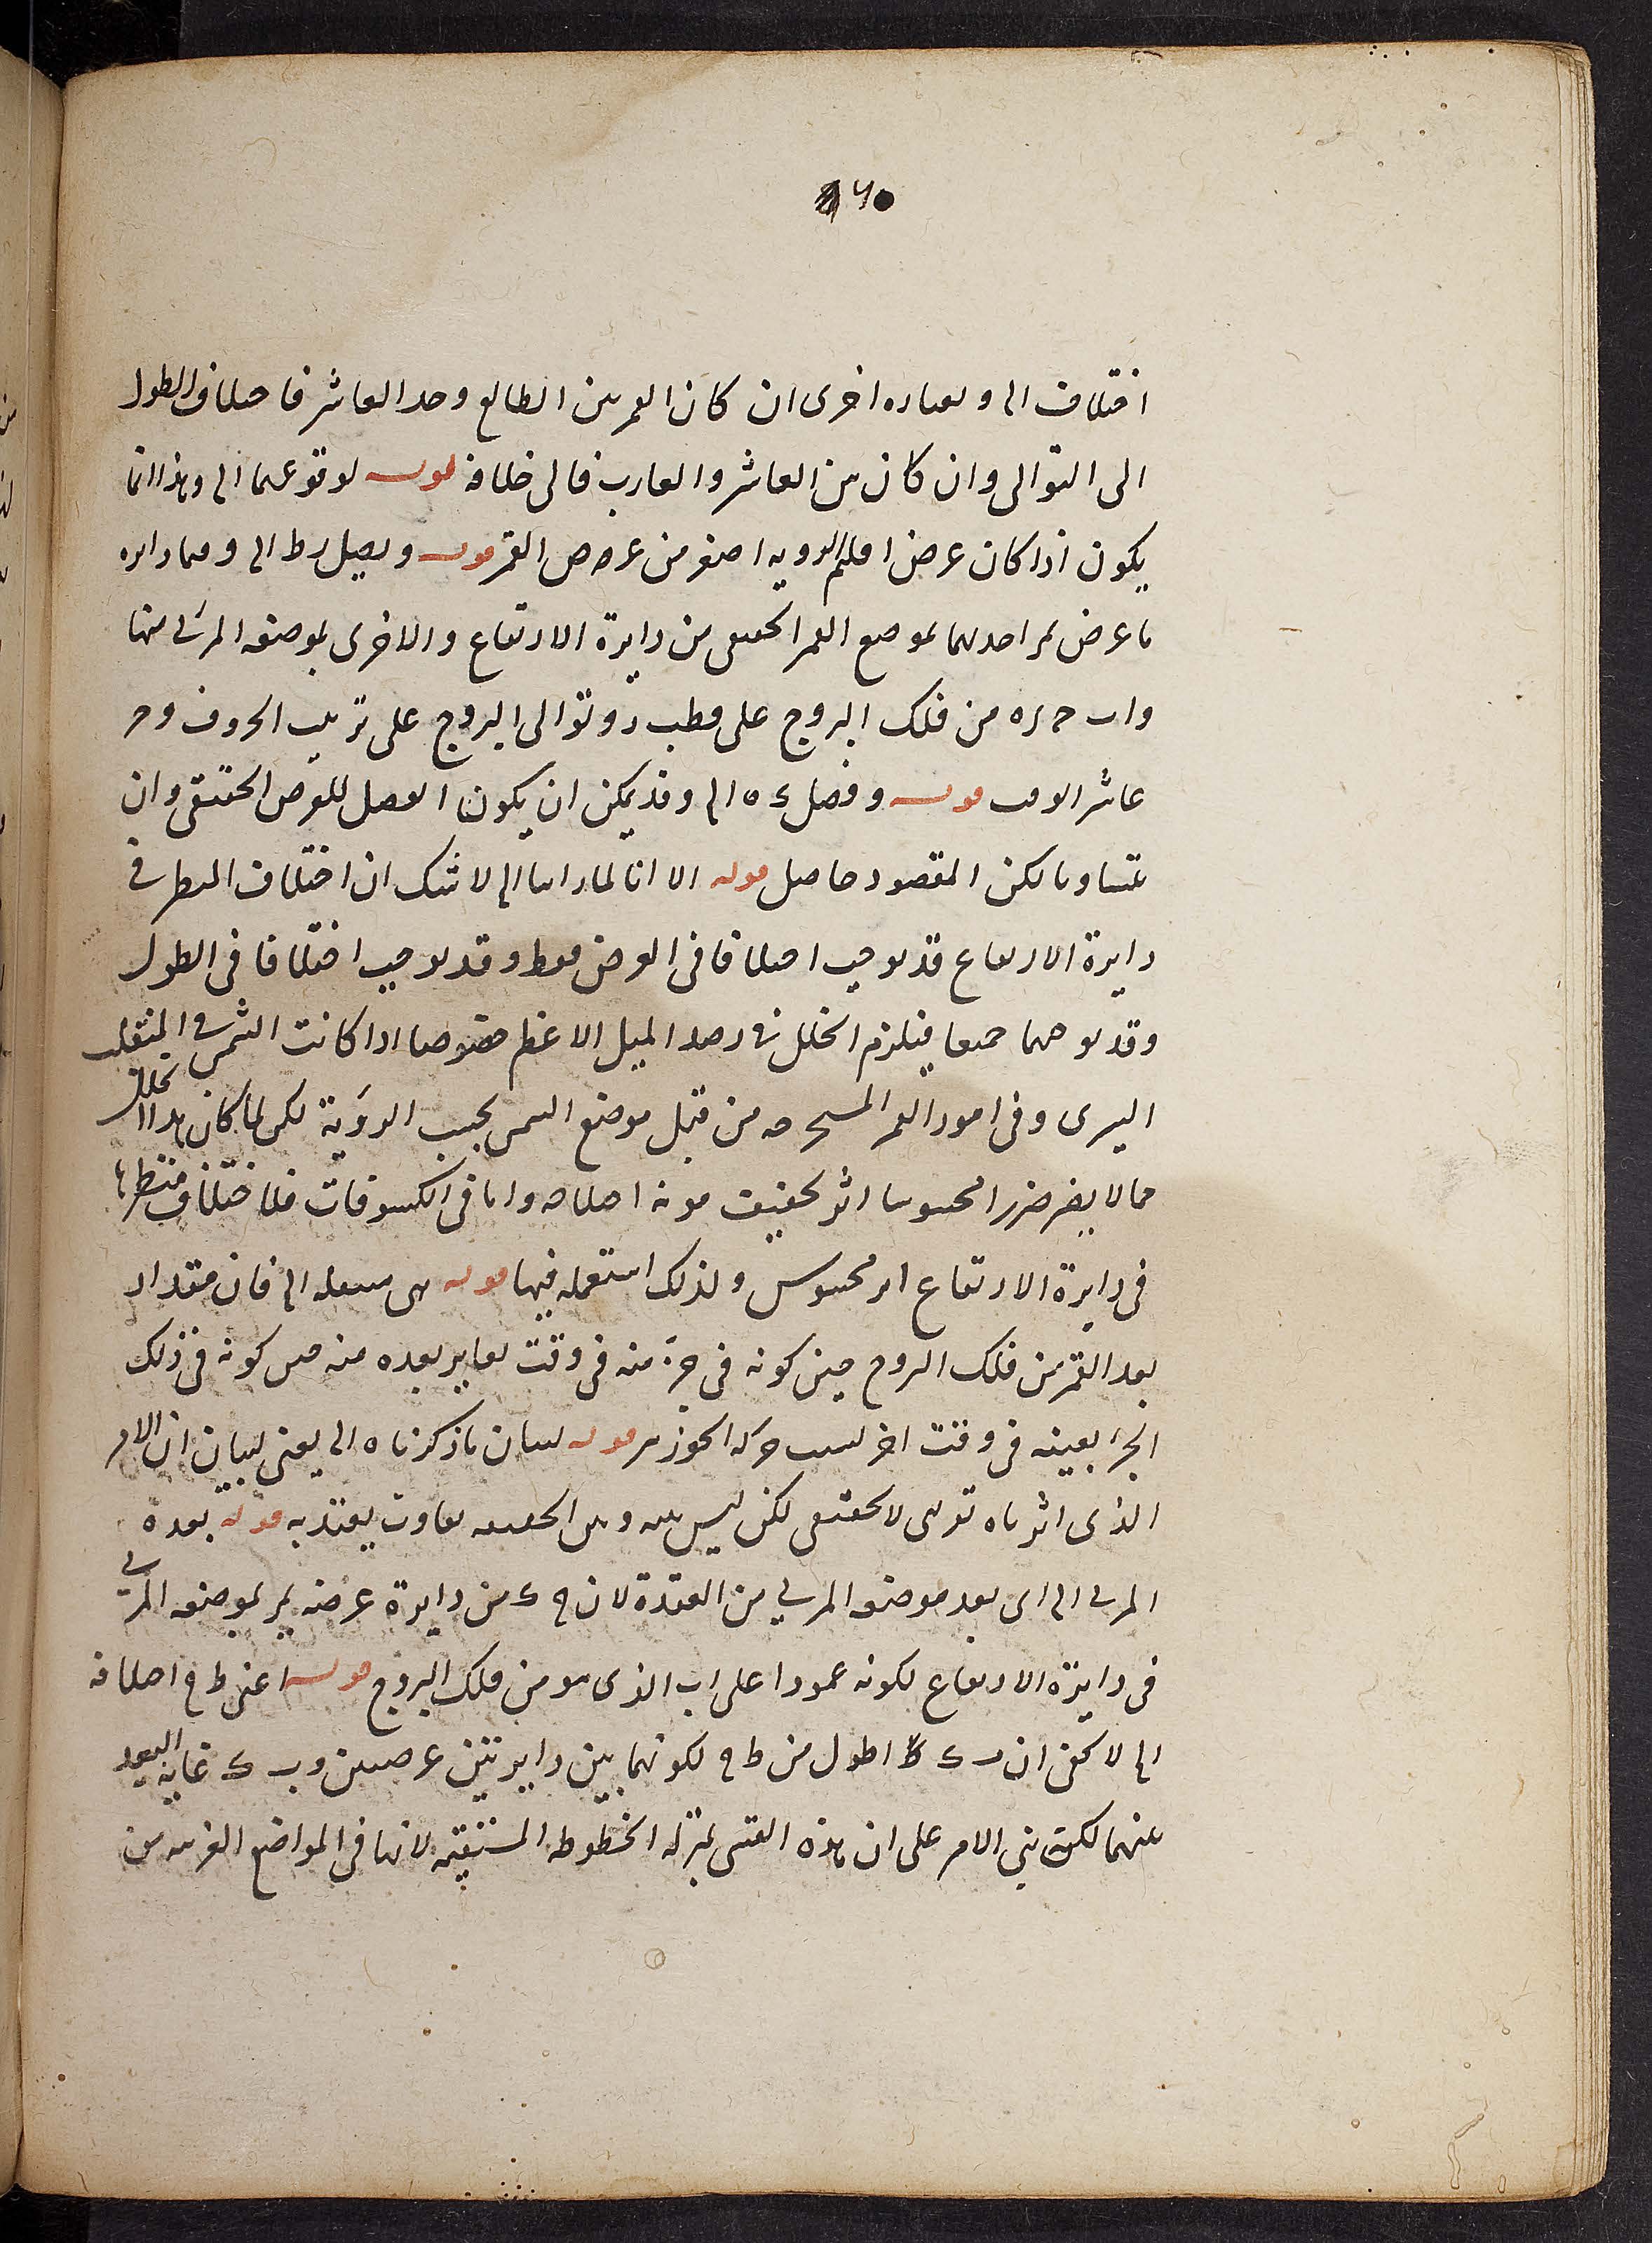 اختلاف الى وبعباره اخرى ان كان القمر بين الطالع وحد العاشر فاختلاف الطول
الى التوالى وان كان بين العاشر والغارب فالى خلافه قوله لوقوعهما الى وهذا انما
يكون اذا كان عرض اقليم الرويه اصغر من عرض القمر قوله ونصل رط الى وهما دايره
ما عرض تمر احديهما بموضع القمر الحقيقى من دايرة الارتفاع والاخرى بموضعه المرئى منها
واب ح ره من فلك البروج على قطب د وتوالى البروج على ترتيب الحروف وحر
عاشر الوقت قوله وفصل ى ه الى وقد يمكن ان يكون الفصل للعرض الحقيقى وان
يتساويا لكن المقصود حاصل قوله الا انا لما راينا الى لا شك ان اختلاف المنظر فى
دايرة الارتفاع قد يوجب اختلافا فى العرض فقط وقد يوجب اختلافا فى الطول
وقد يوجبهما جميعا فيلزم الخلل فى رصد الميل الاعظم خصوصا اذا كانت الشمس فى المنقلب
اليسرى وفى امور القمر المستخرجه من قبل موضع الشمس بحسب الروية لكن لما كان هذا الخلل
مما لا يضر ضررا محسوسا اثر تخفيف مونه اصلاحه واما فى الكسوفات فلاختلاف منظرها
فى دايرة الارتفاع امر محسوس ولذلك استعمله فيها قوله هى مستعمله الى فان مقدار
بعد القمر من فلك البروج حين كونه فى جزء منه فى وقت يغاير بعده منه حين كونه فى ذلك
الجزء بعينه فى وقت اخر بسبب حركة الجوزهر قوله لبيان ما ذكرناه الى يعنى لبيان ان الامر
الذى اثرناه تقريبى لا تحقيقى لكن ليس بينه وبين الحقيقه تفاوت يعتد به قوله بعده
المرئى الى اى بعد موضعه المرئى من العقدة لان ح ك من دايرة عرضه يمر بموضعه المرئى
فى دايرة الارتفاع لكونه عمودا على اب الذى هو من فلك البروج قوله اعنى ط ح اختلافه
الى لا يخفى ان ب ك اطول من ط ح لكونهما بين دايرتين عرضيتين وب ك غاية البعد
بينهما لكن بنى الامر على ان هذه القسى بمنزلة الخطوط المستقيمه لانها فى المواضع القريبه من